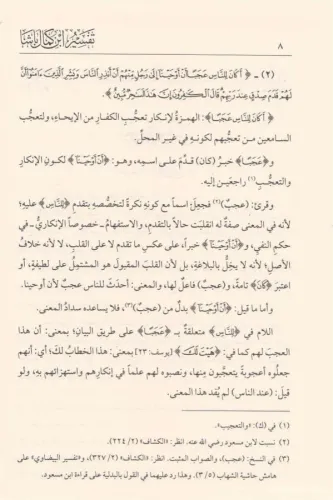 ٨
تفسير ابن كمال باشا
(٢) - ﴿أَكَانَ لِلنَّاسِ عَجَبًا أَنْ أَوْحَيْنَا إِلَى رَجُلٍ مِنْهُمْ أَنْ أَنْذِرِ النَّاسَ وَبَشِّرِ الَّذِينَ ءَامَنُوا أَنَّ
لَهُمْ قَدَمَ صِدْقٍ عِنْدَ رَبِّهِمْ قَالَ الْكَافِرُونَ إِنَّ هَذَا لَسَاحِرٌ مُبِينٌ﴾.
﴿أَكَانَ لِلنَّاسِ عَجَبًا﴾: الهمزةُ لإنكار تعجُّبِ الكفار من الإيحاء، ولتعجُّب
السامعين من تعجُّبهم لكونه في غير المحلّ.
و﴿عَجَبًا﴾ خبرُ (كان) قدِّمَ على اسمِه، وهو: ﴿أَنْ أَوْحَيْنَا﴾ لكون الإنكار
والتعجُّب(١) راجعَين إليه.
وقرئ: (عجبٌ)(٢) فجعلَ اسماً مع كونه نكرةً لتخصُّصه بتقدم ﴿لِلنَّاسِ﴾ عليه؛
لأنه في المعنى صفةٌ له انقلبَت حالاً بالتقدم، والاستفهامُ ـ خصوصاً الإنكاريُّ ـ في
حكمِ النفي، و﴿أَنْ أَوْحَيْنَا﴾ خبراً، على عكسِ ما تقدم لا على القلب، لا لأنه خلافُ
الأصل؛ لأنه لا يخلُّ بالبلاغة، بل لأن القلبَ المقبول هو المشتملُ على لطيفةٍ، أو
اعتبرَ ﴿كَانَ﴾ تامةً، و(عجبٌ) فاعلٌ لها، والمعنى: أحدثَ للناس عجبٌ لأن أوحينا.
وأما ما قيل: ﴿أَنْ أَوْحَيْنَا﴾ بدلٌ من (عجبٌ)(٣)، فلا يساعده سدادُ المعنى.
اللام في ﴿لِلنَّاسِ﴾ متعلقةٌ بـ﴿عَجَبًا﴾ على طريق البيان؛ بمعنى: أن هذا
العجبَ لهم كما في: ﴿هَيْتَ لَكَ﴾ [يوسف: ٢٣] بمعنى: هذا الخطابُ لكَ؛ أي: أنهم
جعلُوه أعجوبةً يتعجَّبون منها، ونصبوه لهم علماً في إنكارِهم واستهزائهم به، ولو
قيلَ: (عند الناس) لم يُفد هذا المعنى.
(١) في (ك): «والتعجيب».
(٢) نسبت لابن مسعود رضي الله عنه. انظر: «الكشاف» (٢/ ٢٢٤).
(٣) في النسخ: (عجب)، والصواب المثبت. انظر: «الكشاف» (٢/ ٣٢٧)، و«تفسير البيضاوي» على
هامش حاشية الشهاب (٥/ ٣). وهذا رد عليهما في القول بالبدلية على قراءة ابن مسعود.